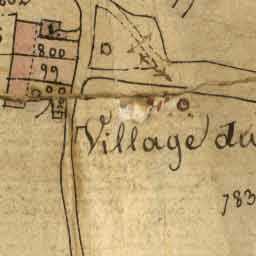 800
99
Village du
783